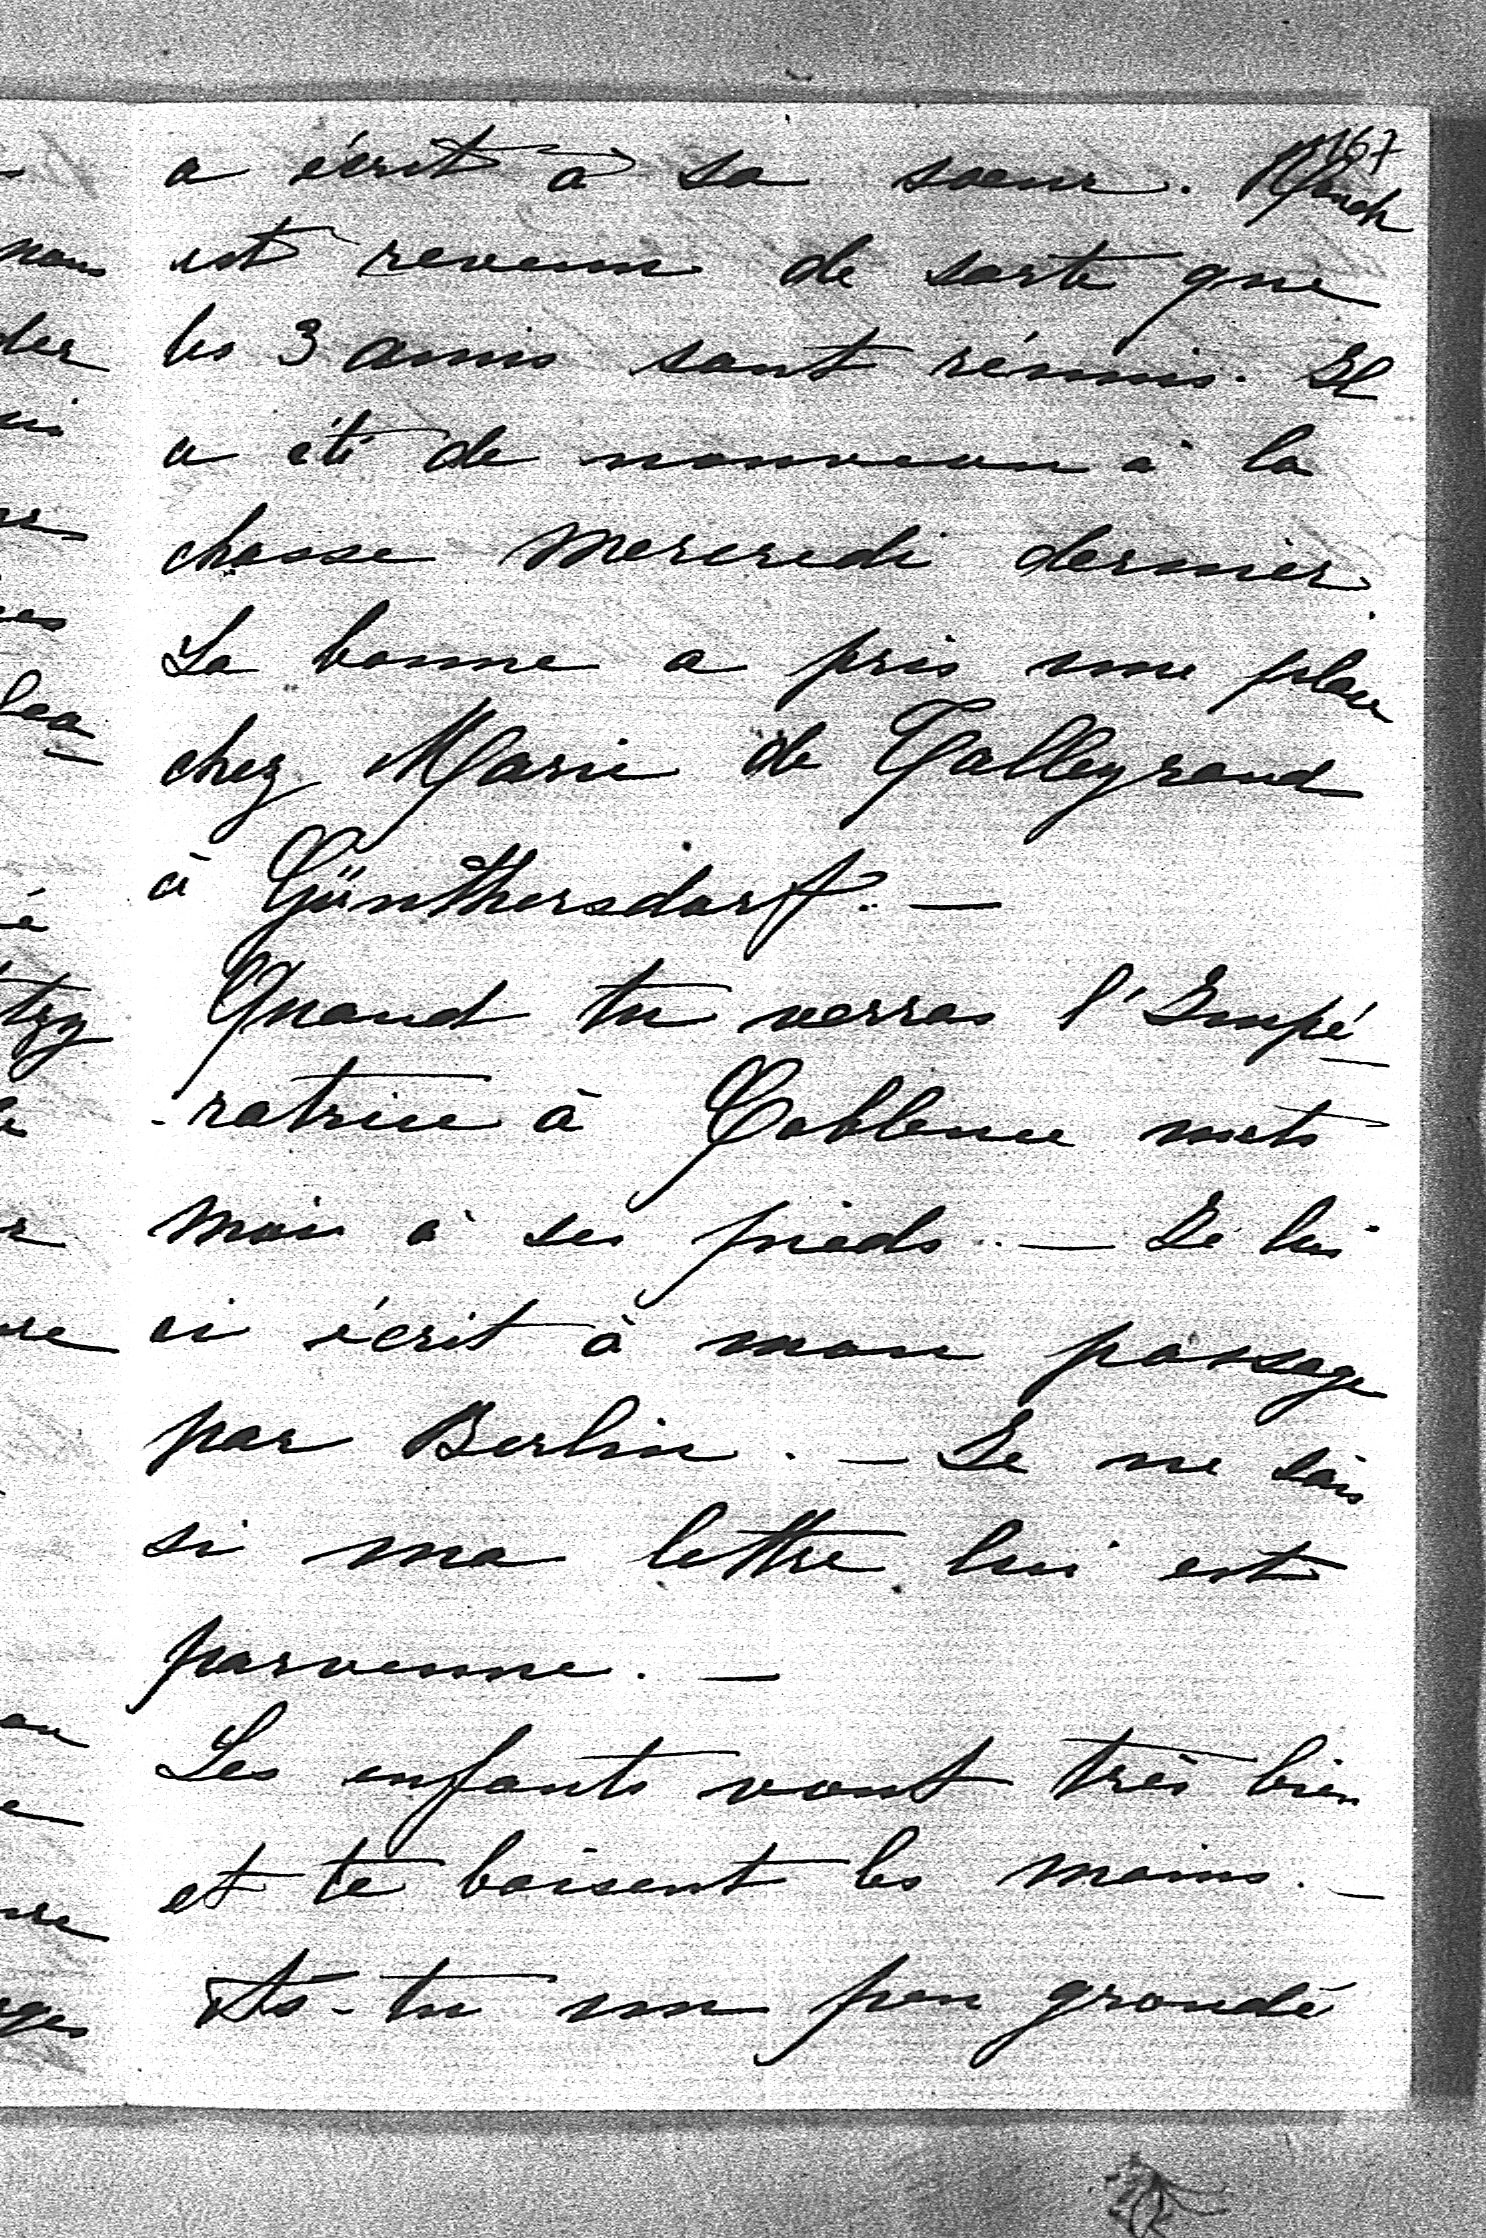 167
a écrit à sa soeur.
est revenu de sorte que
les 3 amis sont réunis. Il
a été de nouveau à la
chasse mercredi dernier.
La bonne a pris une place
chez Marie de Talleyrand
à Günthersdorff. —
Quand tu verras l'Impé-
-ratrice à Coblence mets
moi à ses pieds. — Je lui
ai écrit à mon passage
par Berlin. — Je ne sais
si ma lettre lui est
parvenue. —
Les enfants vont très bien
et te baisent les mains. —
As-tu un peu grondé